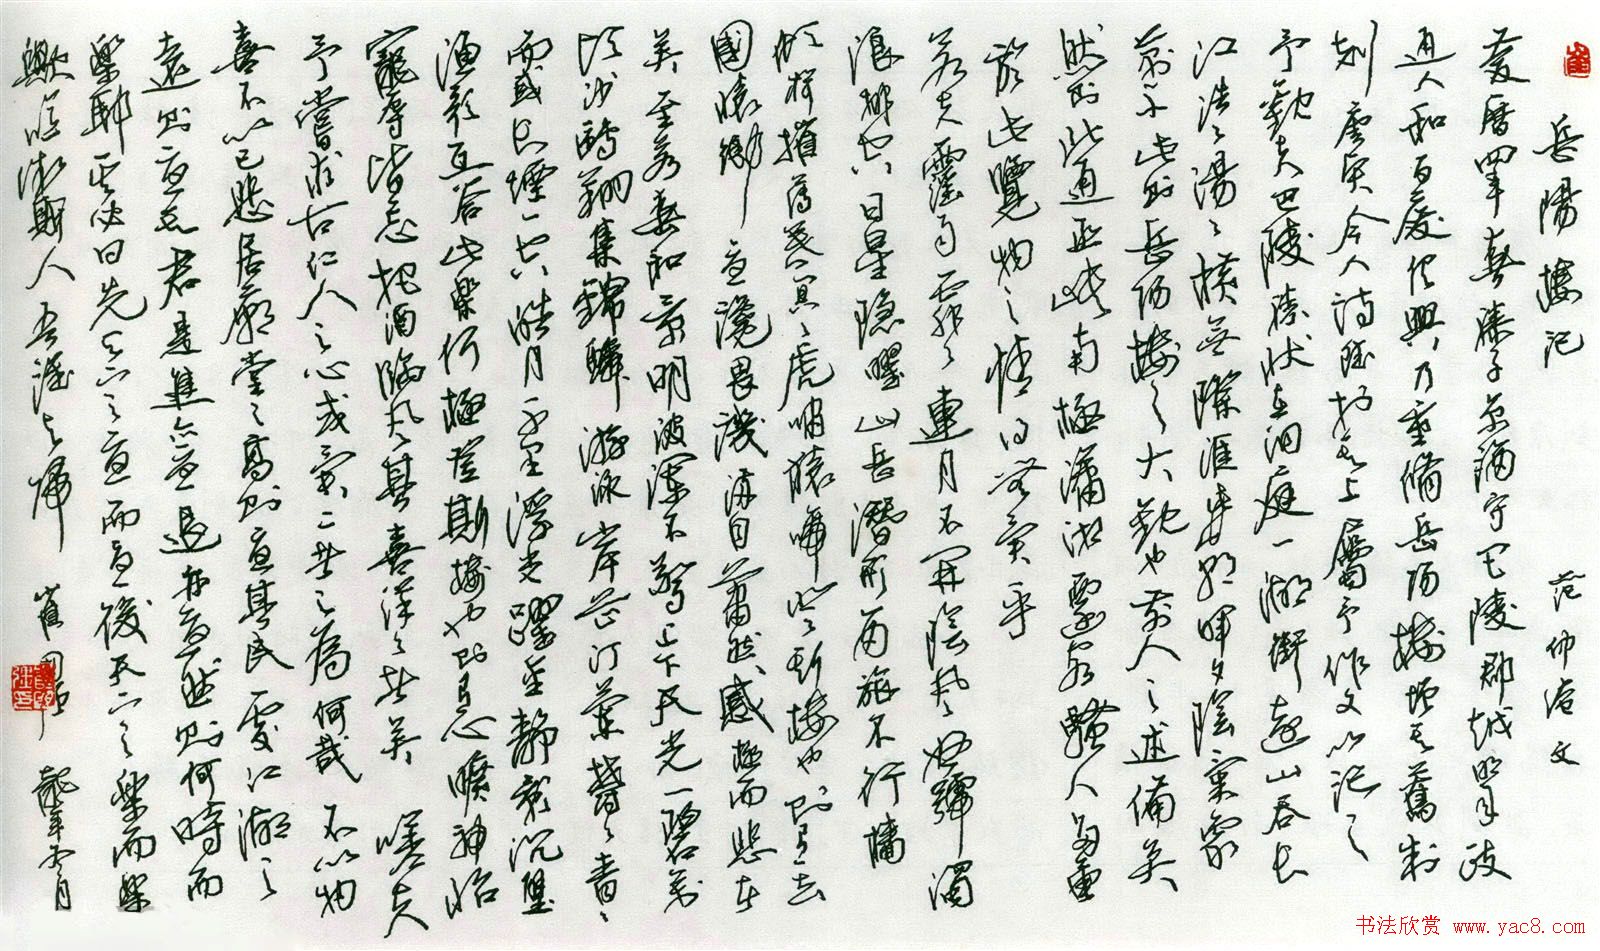 岳陽樓記 范仲淹文
慶曆四年春滕子京謫守巴陵郡越明年政
通人和百廢俱興乃重脩岳陽樓增其舊制
刻唐賢今人詩賦於其上屬予作文以記之
予觀夫巴陵勝狀在洞庭一湖銜遠山吞長
江浩〻湯〻橫無際涯朝暉夕陰氣象
萬千此則岳陽樓之大觀也前人之述備矣
然則北通巫峽南極瀟湘遷客騷人多會
於此覽物之情得無異乎
若夫霪雨霏〻連月不開陰風怒號濁
浪排空日星隱曜山岳潛形商旅不行檣
傾楫摧薄暮冥〻虎嘯猿啼登斯樓也則有去
國懷鄉憂讒畏譏滿目蕭然感極而悲者
矣至若春和景明波瀾不驚上下天光一碧萬
頃沙鷗翔集錦鱗游泳岸芷汀蘭鬱〻青〻
而或長煙一空皓月千里浮光躍金靜影沉璧
漁歌互答此樂何極登斯樓也則有心曠神怡
寵辱皆忘把酒臨風其喜洋〻者矣 嗟夫
予嘗求古仁人之心或異二者之為何哉不以物
喜不以己悲居廟堂之高則憂其民處江湖之
遠則憂其君是進亦憂退亦憂然則何時而
樂耶其必曰先天下之憂而憂後天下之樂而樂
歟噫微斯人吾誰與歸 崔國強 龍年 月
书法欣赏 www.yac8.com